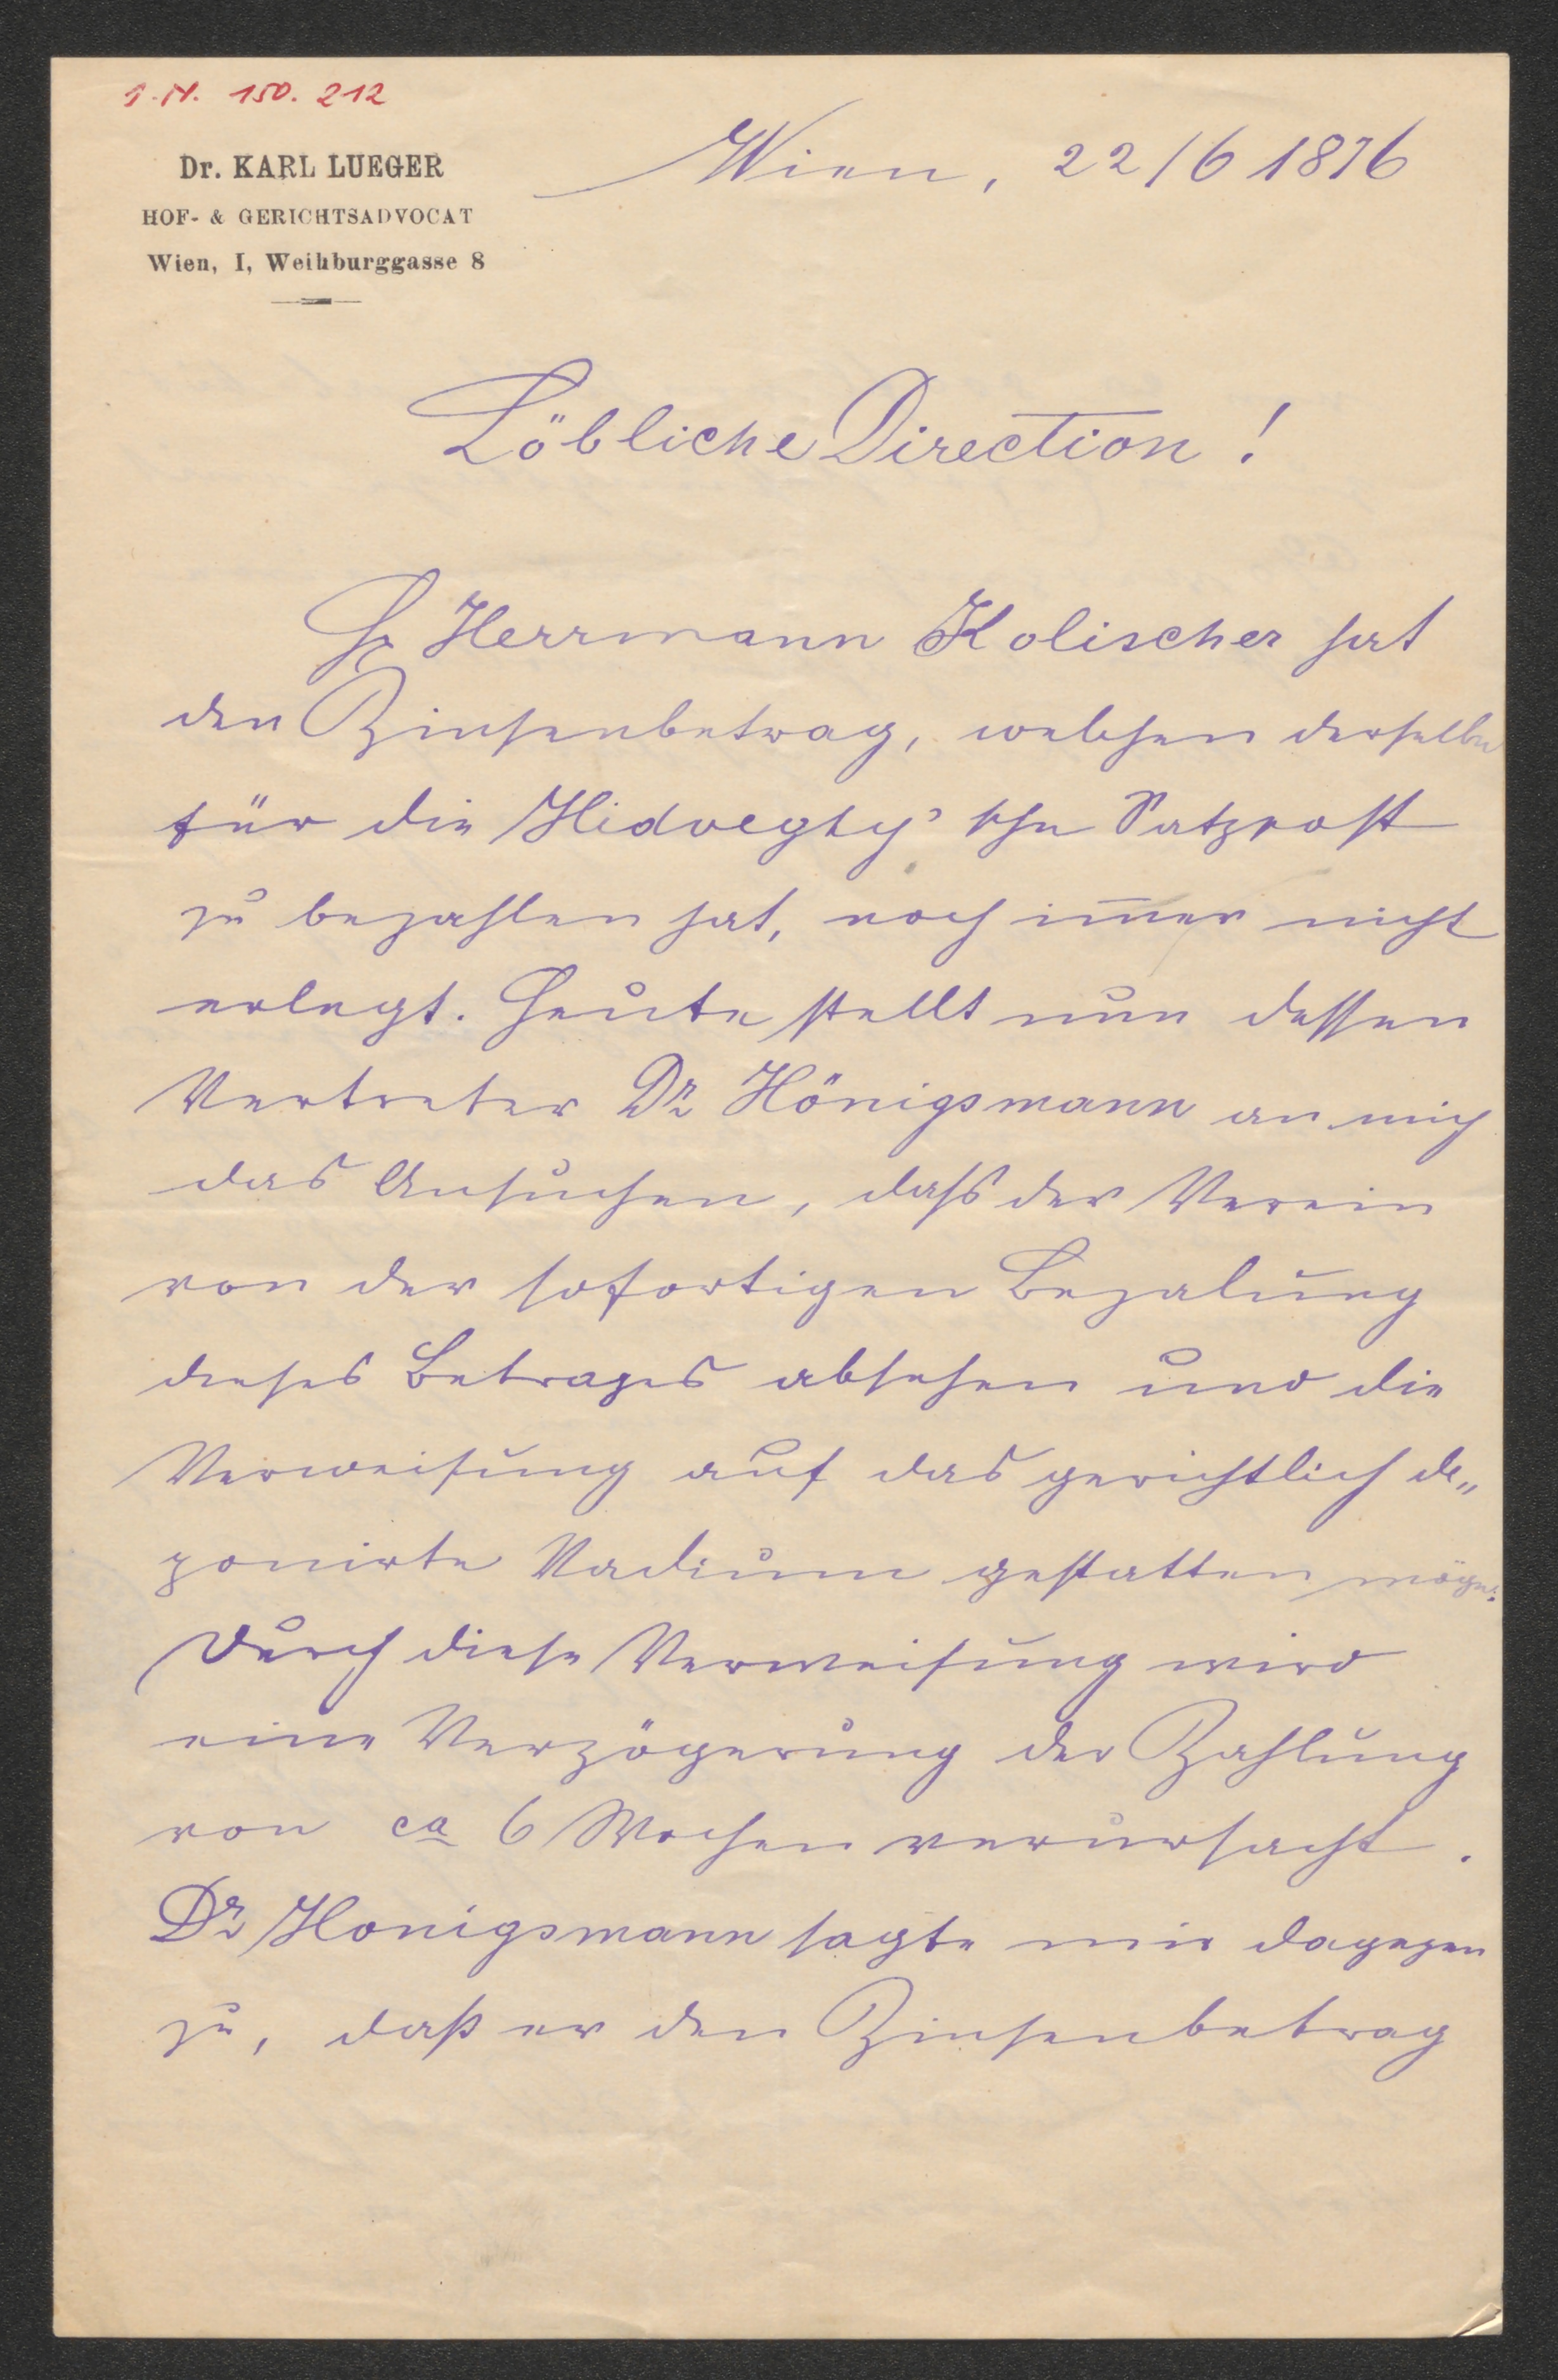 I.N. 150.212
Dr. KARL LUEGER
HOF- & GERICHTSADVOCAT
Wien, I, Weihburggasse 8
Wien, 22/6 1876
Löbliche Direction!
Hr Herrmann Kolischer hat
den Zinsenbetrag, welchen derselbe
für die Hidveghy'sche Satzpost
zu bezahlen hat, noch im̅er nicht
erlegt. Heute stellt nun dessen
Vertreter Dr Hönigsmann an mich
das Ansuchen, dass der Verein
von der sofortigen Bezalung
dieses Betrages absehen und die
Verweisung auf das gerichtlich de„
ponirte Vadium gestatten möge.
Durch diese Verweisung wird
eine Verzögerung der Zahlung
von ca 6 Wochen verursacht.
Dr Honigsmann sagte mir dagegen
zu, daß er den Zinsenbetrag